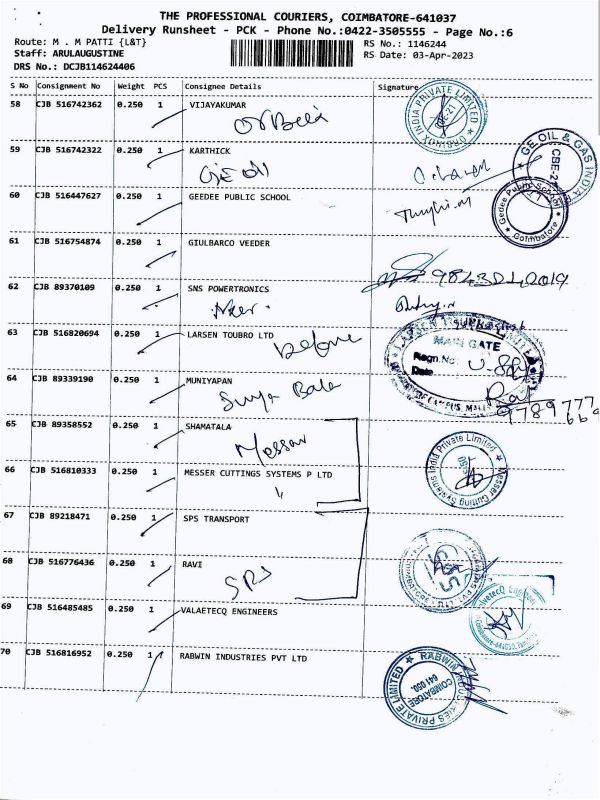 THE PROFESSIONAL COURIERS, COIMBATORE-641037
Delivery Runsheet - PCK - Phone No.:0422-3505555 - Page No.:6
Route: M . M PATTI {L&T}
RS No.: 1146244
Staff: ARULAUGUSTINE
RS Date: 03-Apr-2023
DRS No.: DCJB114624406
S No Consignment No Weight PCS Consignee Details Signature
58 CJB 516742362 0.250 1 VIJAYAKUMAR
INDIA PRIVATE LIMITED
59 CJB 516742322 0.250 1 KARTHICK
GE Oil
GE OIL & GAS INDIA
CBE-2
60 CJB 516447627 0.250 1 GEEDEE PUBLIC SCHOOL
Geedee Public School
Coimbatore
61 CJB 516754874 0.250 1 GIULBARCO VEEDER
62 CJB 89370109 0.250 1 SNS POWERTRONICS
63 CJB 516820694 0.250 1 LARSEN TOUBRO LTD
Defence
MAIN GATE
Regn.No:
Date
64 CJB 89339190 0.250 1 MUNIYAPAN
Surya Bala
9789777
669
65 CJB 89358552 0.250 1 SHAMATALA
Messar
66 CJB 516810333 0.250 1 MESSER CUTTINGS SYSTEMS P LTD
Messer Cutting Systems India Private Limited
67 CJB 89218471 0.250 1 SPS TRANSPORT
68 CJB 516776436 0.250 1 RAVI
SPS
69 CJB 516485485 0.250 1 VALAETECQ ENGINEERS
70 CJB 516816952 0.250 1 RABWIN INDUSTRIES PVT LTD
RABWIN INDUSTRIES PRIVATE LIMITED
COIMBATORE
641 050.